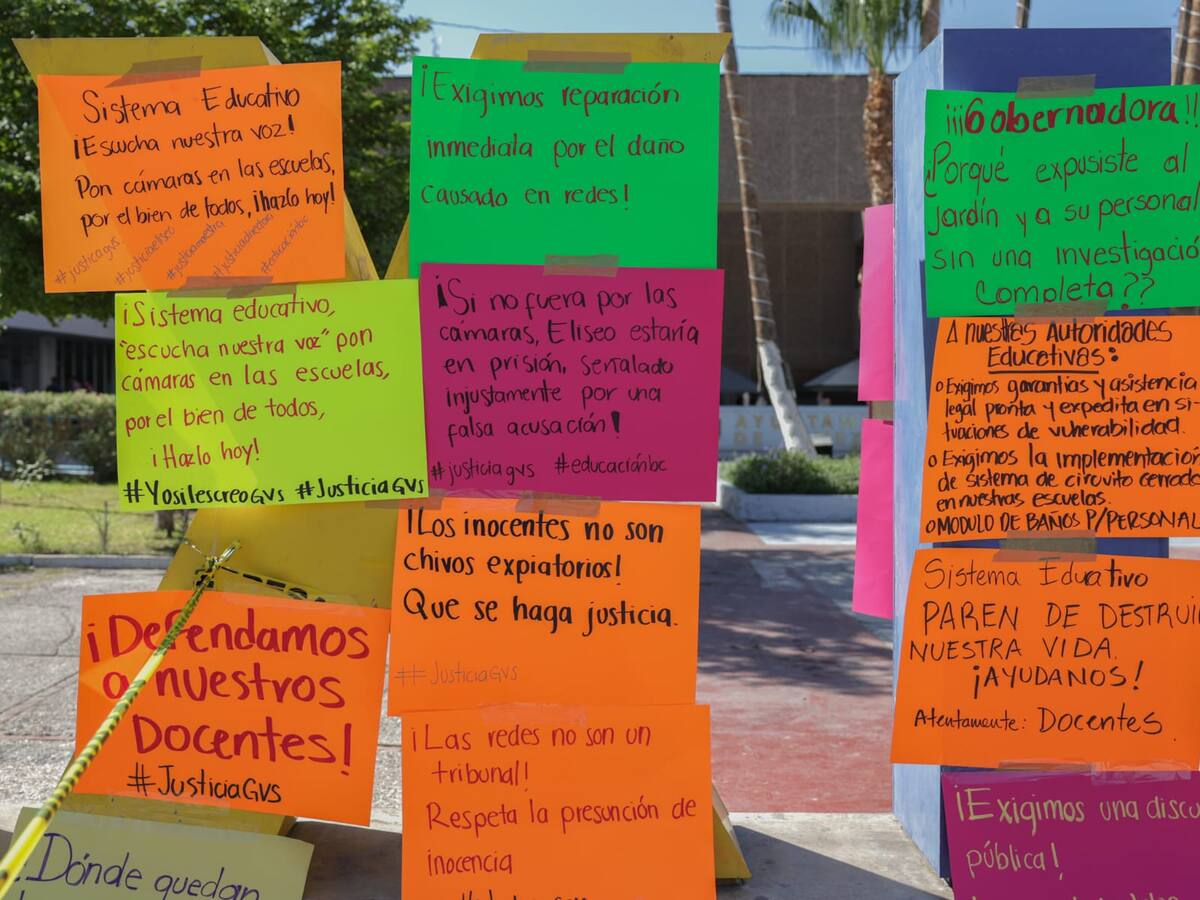 Sistema Educativo
¡Escucha nuestra voz!
Pon cámaras en las escuelas,
por el bien de todos, ¡hazlo hoy!
#justicagvs
#justiciaeliseo
#justiciamaestra
#justiciadirectora
#educaciónbc
¡Exigimos reparación
inmediata por el daño
causado en redes!
¡¡¡Gobernadora!!
¿Porqué expusiste al
jardín y a su personal
sin una investigació
Completa??
¡Sistema educativo,
"escucha nuestra voz" pon
cámaras en las escuelas,
por el bien de todos,
¡Hazlo hoy!
#YosilescreoGVS #JusticiaGVS
¡Si no fuera por las
cámaras, Eliseo estaría
en prisión, señalado
injustamente por una
falsa acusación!
#justiciagvs #educaciónbc
A nuestras Autoridades
Educativas:
o Exigimos garantías y asistencia
legal pronta y expedita en si-
tuaciones de vulnerabilidad.
o Exigimos la implementación
de sistema de circuito cerrado
en nuestras escuelas.
o MODULO DE BAÑOS P/PERSONAL
¡Los inocentes no son
chivos expiatorios!
Que se haga justicia.
##JusticiaGVS
Sistema Educativo
PAREN DE DESTRUI
NUESTRA VIDA.
¡AYUDANOS!
Atentamente: Docentes
¡Defendamos
a nuestros
Docentes!
#JusticiaGVS
¡Las redes no son un
tribunal!
Respeta la presunción de
inocencia
¡Exigimos una discu
pública!
¿Dónde quedan